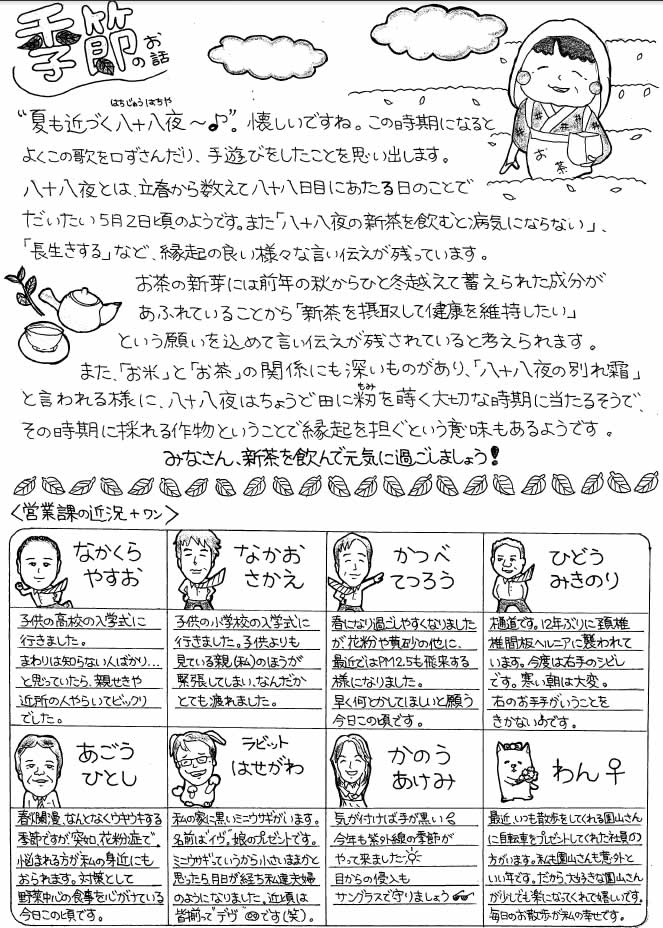 季節のお話
はちじゅうはちや
“夏も近づく八十八夜～♪”。懐しいですね。この時期になると
よくこの歌を口ずさんだり、手遊びをしたことを思い出します。
八十八夜とは、立春から数えて八十八日目にあたる日のことで
だいたい5月2日頃のようです。また「八十八夜の新茶を飲むと病気にならない」、
「長生きする」など、縁起の良い様々な言い伝えが残っています。
お茶の新芽には前年の秋からひと冬越えて蓄えられた成分が
あふれていることから「新茶を摂取して健康を維持したい」
という願いを込めて言い伝えが残されていると考えられます。
また、「お米」と「お茶」の関係にも深いものがあり、「八十八夜の別れ霜」
もみ
と言われる様に、八十八夜はちょうど田に籾を蒔く大切な時期に当たるそうで、
その時期に採れる作物ということで縁起を担ぐという意味もあるようです。
みなさん、新茶を飲んで元気に過ごしましょう!
お茶
<営業課の近況+ワン>
なかくら
やすお
子供の高校の入学式に
行きました。
まわりは知らない人ばかり...
と思っていたら、親せきや
近所の人やらいてビックリ
でした。
なかお
さかえ
子供の小学校の入学式に
行きました。子供よりも
見ている親(私)のほうが
緊張してしまい、なんだか
とても疲れました。
かつべ
てつろう
春になり過ごしやすくなりました
が、花粉や黄砂の他に、
最近ではPM2.5も飛来する
様になりました。
早く何とかしてほしいと願う
今日この頃です。
ひどう
みきのり
樋道です。12年ぶりに頚椎
椎間板ヘルニアに襲われて
います。今度は右手のシビレ
です。寒い朝は大変。
右のお手手がいうことを
きかないのです。
あごう
ひとし
春爛漫、なんとなくウキウキする
季節ですが、突如、花粉症で
悩まれる方が私の身近にも
おられます。対策として
野菜中心の食事を心がけている
今日この頃です。
ラビット
はせがわ
私の家に黒いミニウサギがいます。
名前は“イヴ”。娘のプレゼントです。
ミニウサギっていうから小さいままかと
思ったら、月日が経ち私達夫婦
のようになりました。近頃は
皆揃って“デヴ”です(笑)。
かのう
あけみ
気が付けば手が黒い
今年も紫外線の季節が
やって来ました
目からの侵入も
サングラスで守りましょう
わん♀
最近、いつも散歩をしてくれる園山さん
に自転車をプレゼントしてくれた社員の
方がいます。私も園山さんも意外と
いい年です。だから、大好きな園山さん
が少しでも楽になってくれて嬉しいです。
毎日のお散歩が私の幸せです。